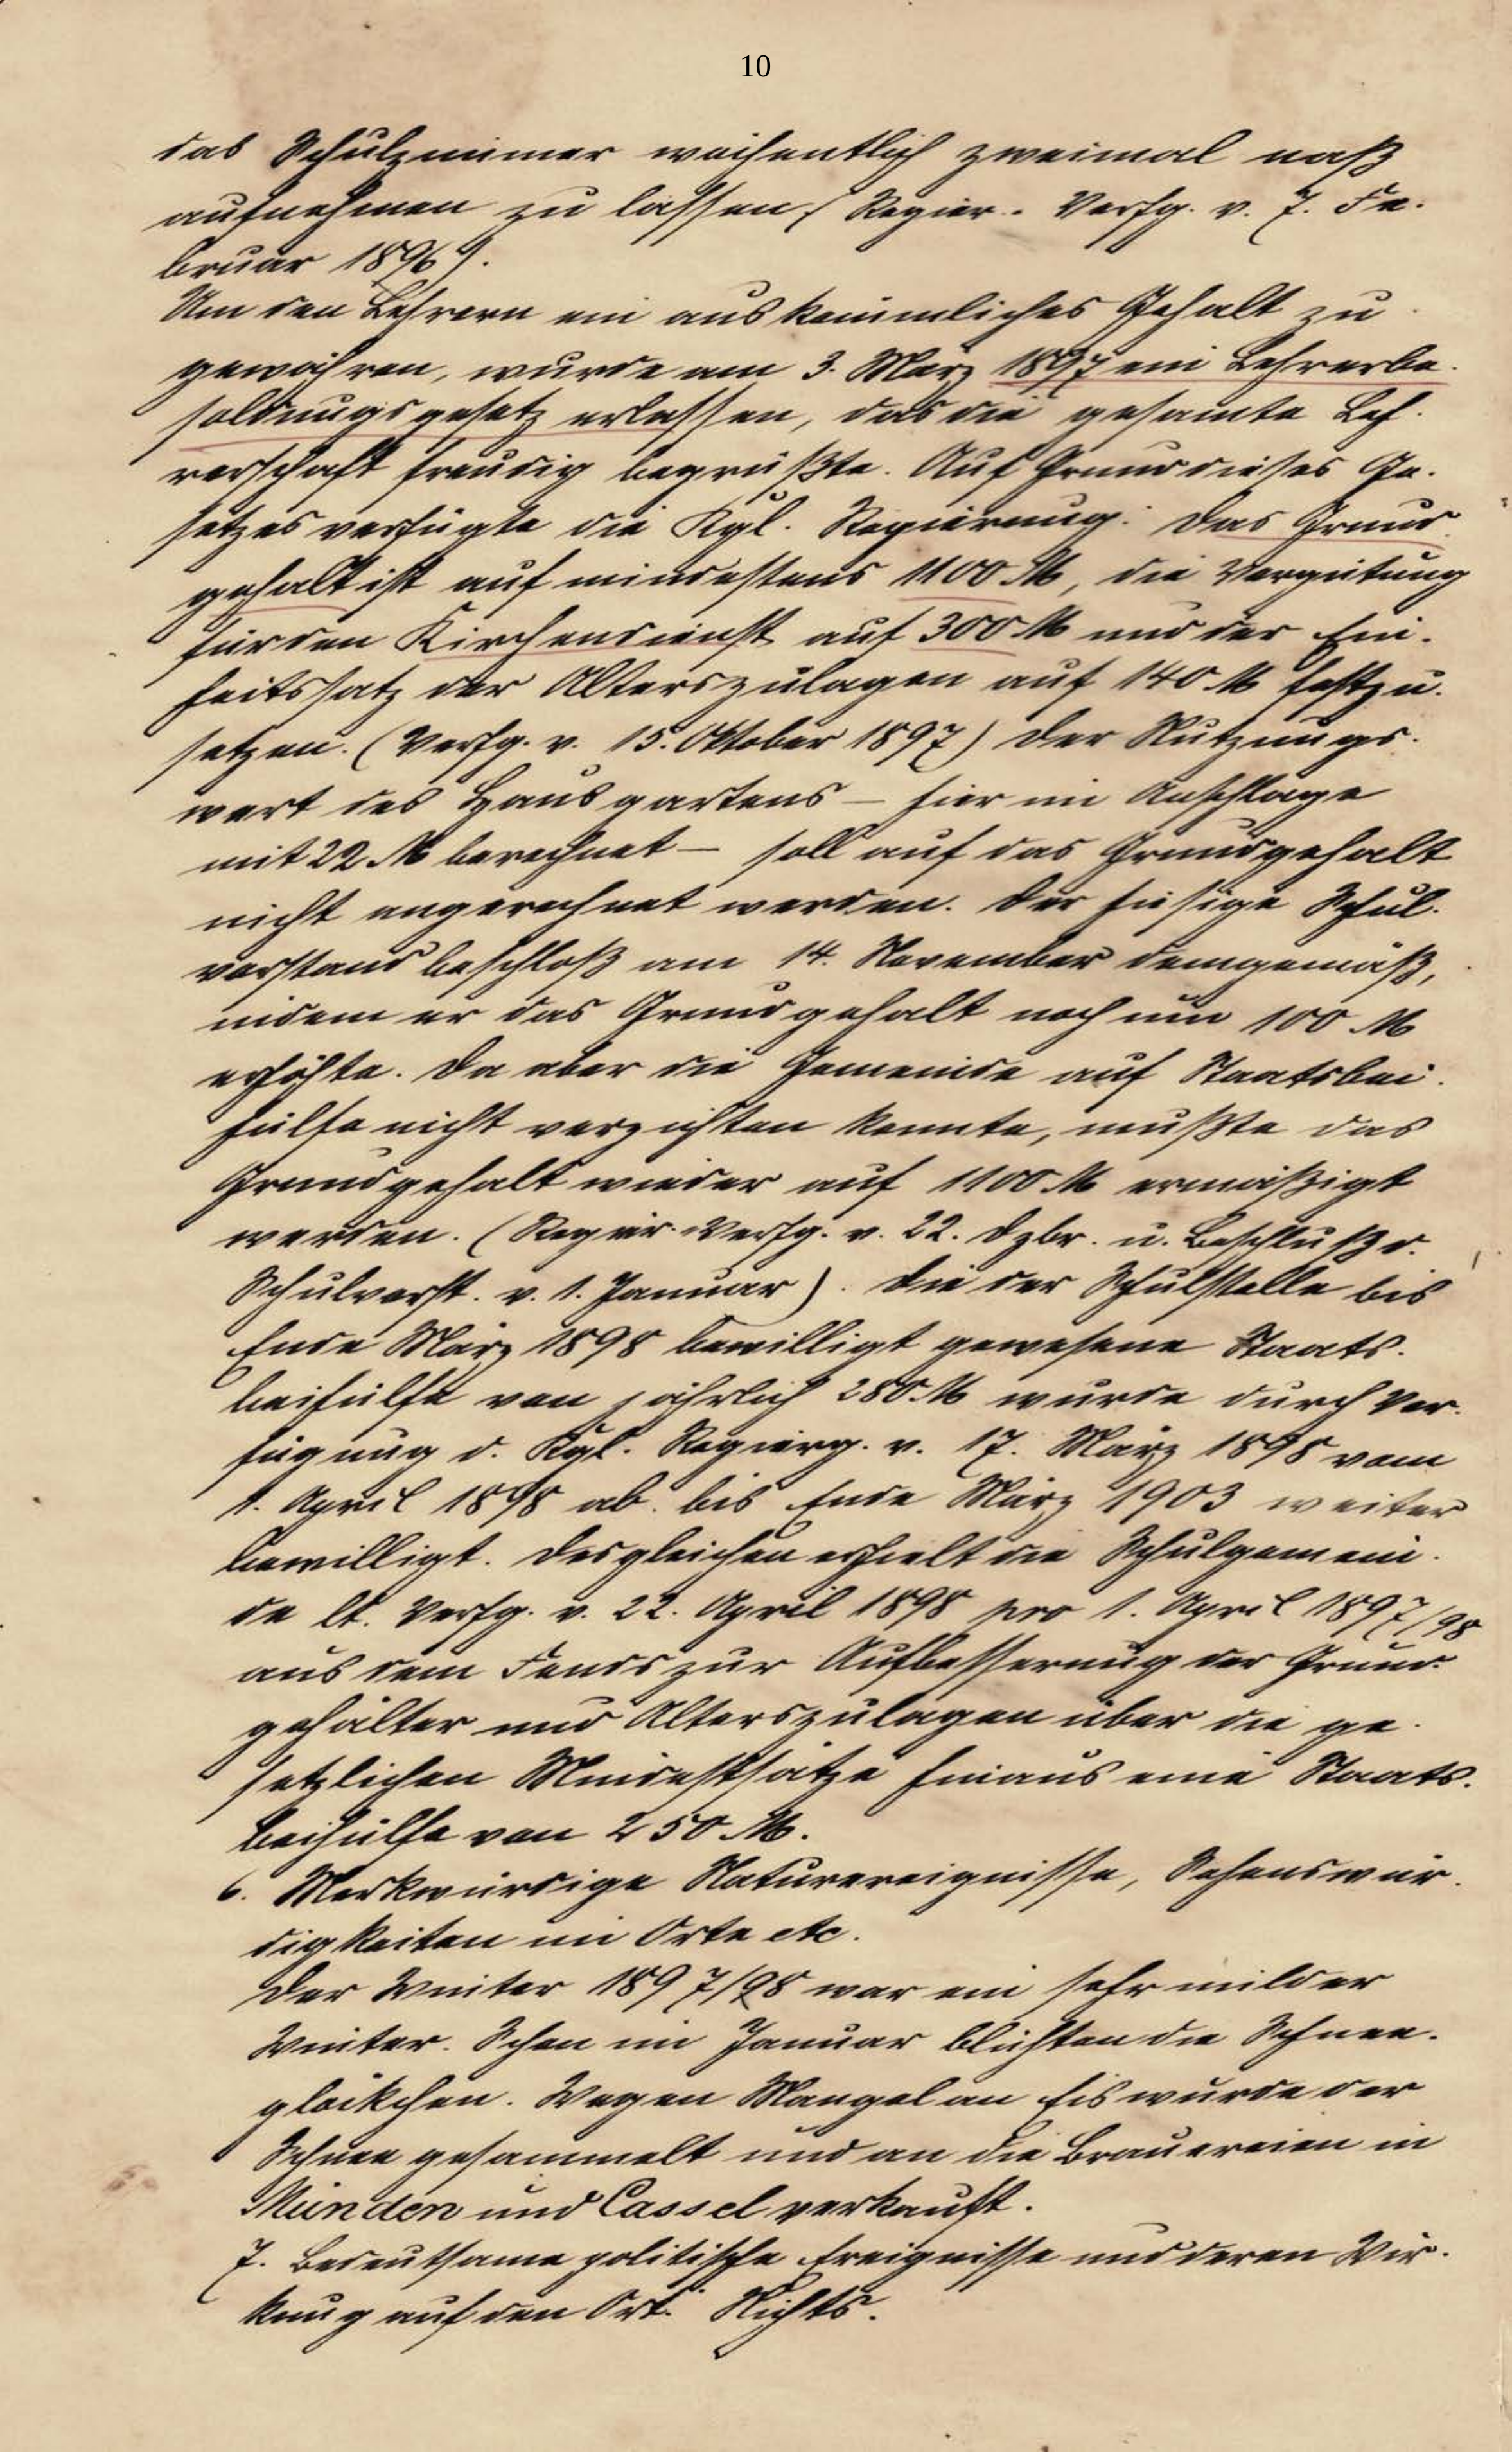 10
das Schulzimmer wöchentlich zweimal naß
aufnehmen zu lassen (Regier.-Verfg. v. 7. Fe-
bruar 1896).
Um den Lehrern ein auskömmliches Gehalt zu
gewähren, wurde am 3. März 1897 ein Lehrerbe-
soldungsgesetz erlassen, das die gesamte Leh-
rerschaft freudig begrüßte. Auf Grund dieses Ge-
setzes verfügte die Kgl. Regierung: Das Grund-
gehalt ist auf mindestens 1100 M, die Vergütung
für den Kirchendienst auf 300 M und der Ein-
heitssatz der Alterszulagen auf 140 M festzu-
setzen. (Verfg. v. 15. Oktober 1897) Der Nutzungs-
wert des Hausgartens – hier im Anschlage
mit 22 M berechnet – soll auf das Grundgehalt
nicht angerechnet werden. Der hiesige Schul-
vorstand beschloß am 14. November demgemäß,
indem er das Grundgehalt noch um 100 M
erhöhte. Da aber die Gemeinde auf Staatsbei-
hülfe nicht verzichten konnte, mußte das
Grundgehalt wieder auf 1100 M ermäßigt
werden. (Regier.-Verfg. v. 22. Dzbr. u. Beschluß d.
Schulvorst. v. 1. Januar). Die der Schulstelle bis
Ende März 1898 bewilligt gewesene Staats-
beihülfe von jährlich 280 M wurde durch Ver-
fügung d. Kgl. Regierg. v. 17. März 1898 vom
1. April 1898 ab bis Ende März 1903 weiter
bewilligt. Desgleichen erhielt die Schulgemein-
de lt. Verfg. v. 22. April 1898 pro 1. April 1897/98
aus dem Fonds zur Aufbesserung der Grund-
gehälter und Alterszulagen über die ge-
setzlichen Mindestsätze hinaus eine Staats-
beihülfe von 250 M.
6. Merkwürdige Naturereignisse, Sehenswür-
digkeiten im Orte etc.
Der Winter 1897/98 war ein sehr milder
Winter. Schon im Januar blühten die Schnee-
glöckchen. Wegen Mangel an Eis wurde der
Schnee gesammelt und an die Brauereien in
Münden und Cassel verkauft.
7. Bedeutsame politische Ereignisse und deren Wir-
kung auf den Ort. Nichts.